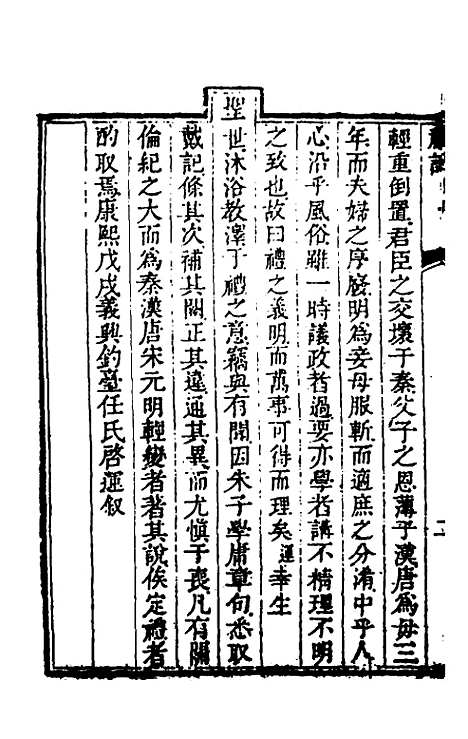 輕重倒置君臣之交壞于秦父子之恩薄乎漢唐爲母三
年而夫婦之序廢明爲妾母服斬而適庶之分淆中乎人
心沿乎風俗雖一時議政者過要亦學者講不精理不明
之致也故曰禮之義明而萬事可得而理矣運幸生
聖世沐浴教澤于禮之意竊與有聞因朱子學庸章句悉取
戴記條其次補其闕正其違通其異而尤愼于喪凡有關
倫紀之大而爲秦漢唐宋元明輕變者著其說俟定禮者
酌取焉康熙戊戌義興釣臺任氏啓運叙